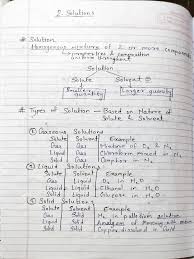 2. Solutions
# Solution
Homogenous mixture of 2 or more components
properties & composition
uniform throughout
Solution
Solute Solvent
Smaller quantity Larger quantity
# Types of Solution - Based on Nature of
Solute & Solvent
① Gaseous Solutions
Solute Solvent Example
Gas Gas Mixture of O2 & N2
Liquid Gas Chloroform mixed in N2
Solid Gas Camphor in N2
② Liquid Solutions
Solute Solvent Example
Gas Liquid O2 in H2O
Liquid Liquid Ethanol in H2O
Solid Liquid Glucose in H2O
③ Solid Solutions
Solute Solvent Example
Gas Solid H2 in palladium
Liquid Solid Amalgam of Mercury with
Solid Solid Copper dissolved in Gold